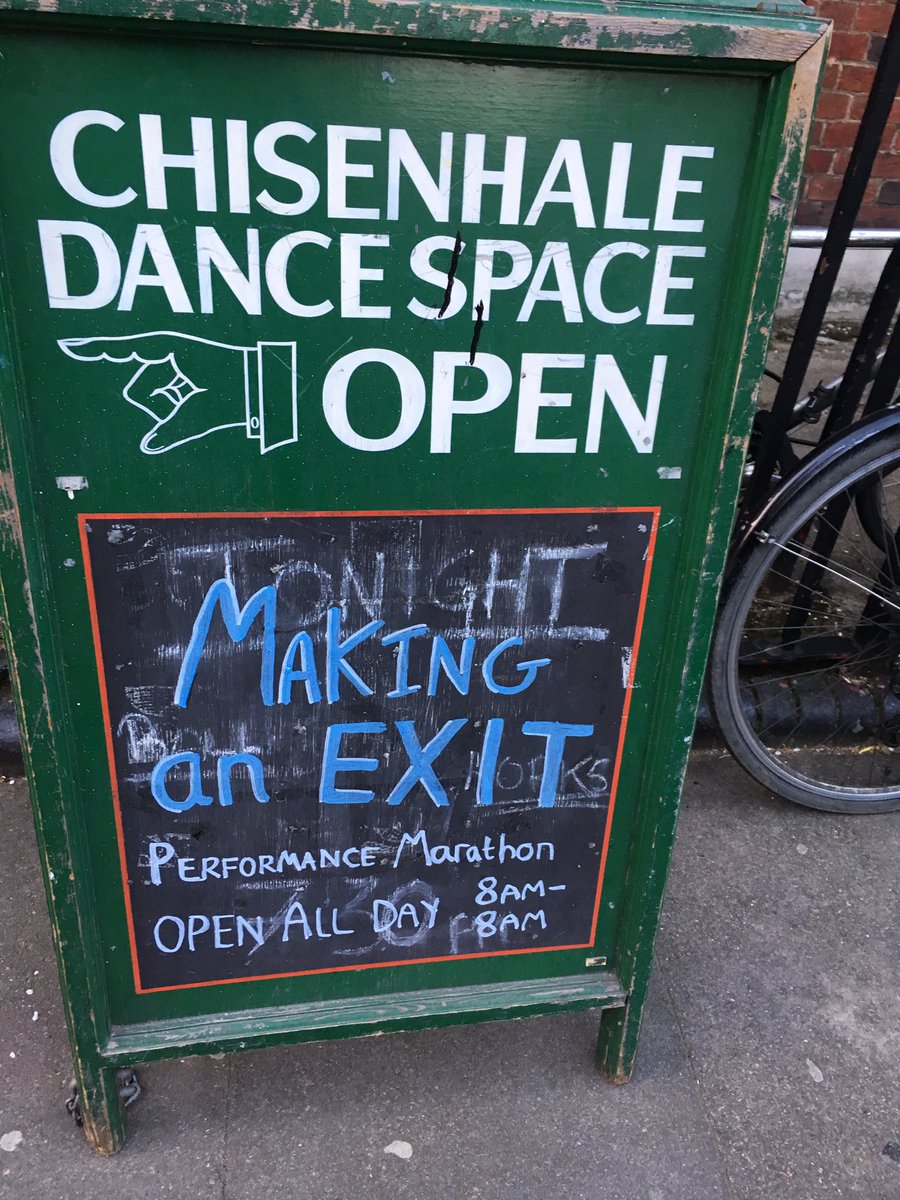 CHISENHALE
DANCE SPACE
OPEN
TONIGHT
MAKING
an EXIT
PERFORMANCE Marathon
OPEN ALL DAY 8AM-
8AM